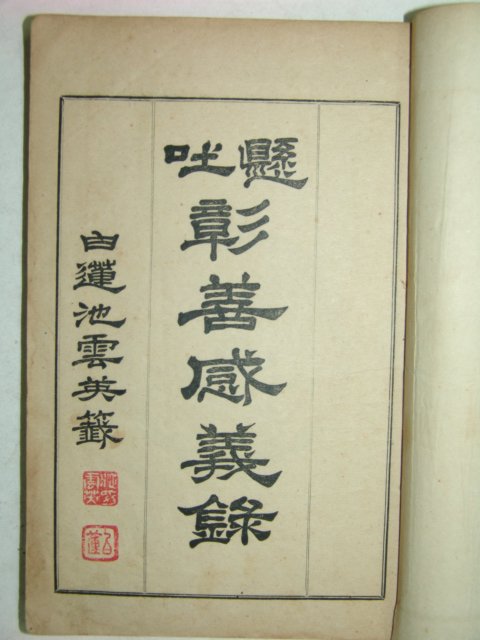 懸吐
彰善感義錄
白蓮池雲英籤
白蓮